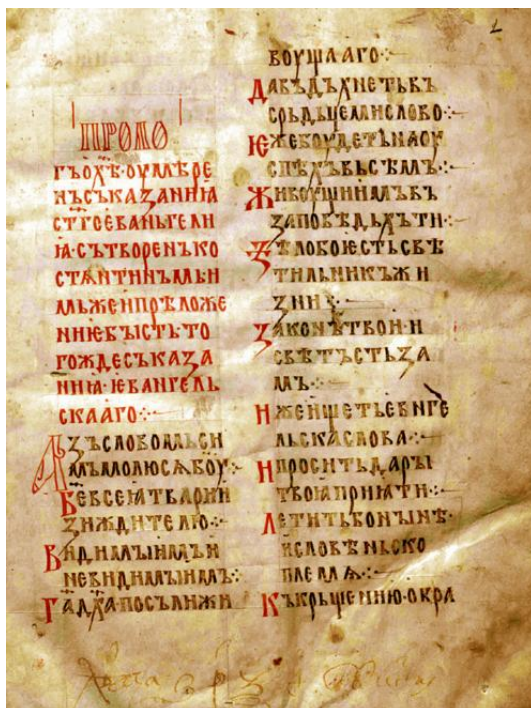 ПРОЛО
гъ о х҃ѣ · оумѣре
нъ съказанниıа
ст҃го еваньгели
ıа · сътворенъ ко
стѧнтинъмь и
мьже и прѣложе
ниѥ бысть то
гожде съказа
ниıа · ѥвангель
скааго :·
Азъ словомь си
мь молюсѧ б҃оу :·
Бе вьсеıа твари и
зиждителю :·
Видимыимъ и
невидимыимъ :·
Г҃а д҃ха посъли жи
воущаго :·
Да въдъхнеть въ
срьдьце ми слово :·
Ѥже боудеть на оу
спѣхъ вьсѣмъ :·
Живоущиимъ въ
заповѣдьхъ ти :·
Ѕѣло бо ѥсть свѣ
тильникъ жи
зни :·
Законъ твои и
свѣтъ стьза
мъ :·
Иже ищеть еѵнге
льска слова :·
И просить дары
твоıа приıати :·
Летить бо нынѣ ·
и словѣньско
племѧ :·
Къ крьщению · обра